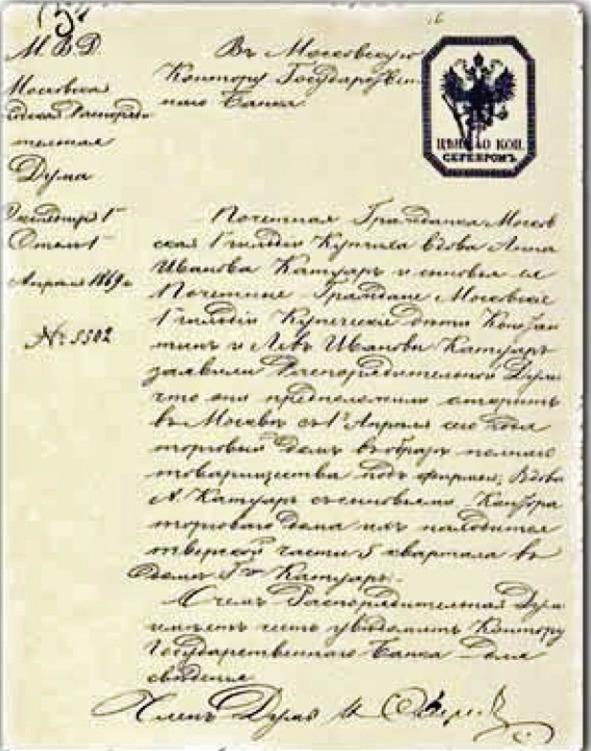 М. В. Д.
Московская
Городская Распоряди
тельная
Дума
Отдел 1
Апреля 1869 г
№ 5502
Въ Московскую
Контору Государствен
наго Банка
ЦѢНА 40 КОП.
СЕРЕБРОМЪ
Почетная Гражданка Москов
ская 1 гильдіи Купчиха вдова Анна
Иванова Катуаръ и сыновья ея
Почетные Граждане Московскіе
1 гильдіи Купеческіе дѣти Констан
тинъ и Левъ Ивановы Катуаръ
заявили Распорядительной Думѣ
что они предположили открыть
въ Москвѣ съ 1го Апрѣля сего года
торговый домъ въ образѣ полнаго
товарищества подъ фирмою: Вдова
А. Катуаръ съ сыновьями. Контора
торговаго дома ихъ находится
тверской части 5 квартала въ
домѣ Гг Катуаръ.
О чемъ Распорядительная Дума
имѣетъ честь увѣдомить Контору
Государственнаго Банка для
свѣденія
Членъ Думы